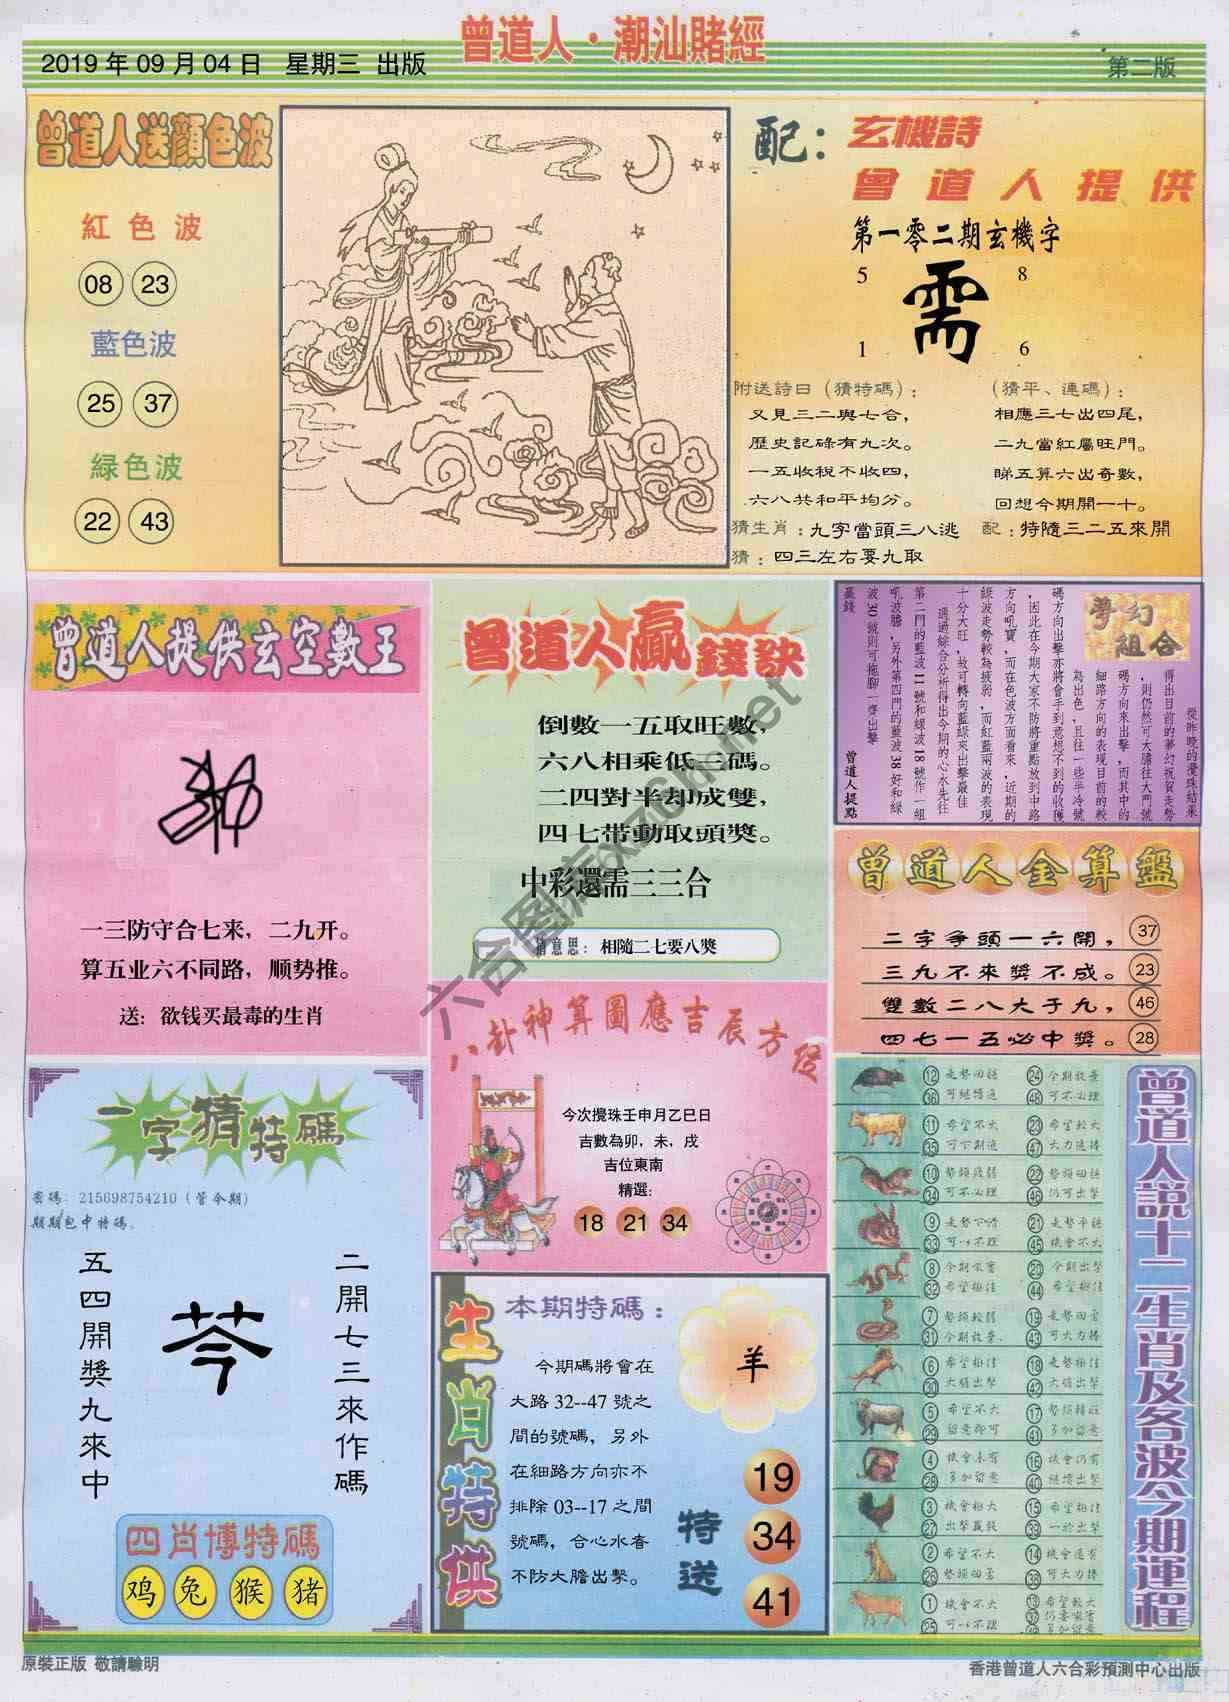 曾道人·潮汕賭經
2019 年 09 月 04 日 星期三 出版
第二版
曾道人送顏色波
紅色波
08 23
藍色波
25 37
緑色波
22 43
配：
玄機詩
曾道人提供
第一零二期玄機字
5 8
需
1 6
附送詩日（猜特碼）：
又見三二與七合，
歷史記碌有九次。
一五收税不收四，
六八共和平均分。
（猜平、連碼）：
相應三七出四尾，
二九當紅屬旺門。
睇五算六出奇數，
回想今期開一十。
猜生肖：九字當頭三八逃
配：特隨三二五來開
猜：四三左右要九取
曾道人提供玄空數王
一三防守合七来，二九开。
算五业六不同路，顺势推。
送：欲钱买最毒的生肖
曾道人贏錢訣
倒數一五取旺數，
六八相乘低三碼。
二四對半却成雙，
四七带動取頭獎。
中彩還需三三合
猜意思：相隨二七要八獎
夢幻組合
從昨晚的攪珠結果
得出目前的夢幻祝賀走勢
，則仍然可大膽往大門號
碼方向來出擊，而其中的
細路方向的表現目前的較
為出色，且往一些半冷號
碼方向出擊亦將會手到意想不到的收穫
，因此在今期大家不防將重點放到中路
方向吼寶，而在色波方面看來，近期的
綠波走勢較為疲弱，而紅藍兩波的表現
十分大旺，故可轉向藍綠來出擊最佳
通過綜合分析得出今期的心水先往
第二門的藍波11號和綠波18號作一組
吼波膽，另外第四門的藍波38好和綠
波30號則可拖腳一齊出擊
贏錢
曾道人提點
曾道人金算盤
二字爭頭一六開， 37
三九不來獎不成。 23
雙數二八大于九， 46
四七一五必中獎。 28
八卦神算圖應吉辰方位
今次攪珠壬申月乙巳日
吉數為卯，未，戌
吉位東南
精選：
18 21 34
一字猜特碼
密碼：215698754210（管今期）
期期包中特碼。
二開七三來作碼
芩
五四開獎九來中
四肖博特碼
鸡 兔 猴 猪
生肖特供
本期特碼：
今期碼將會在
大路 32--47 號之
間的號碼，另外
在細路方向亦不
排除 03--17 之間
號碼，合心水者
不防大膽出擊。
羊
特送
19
34
41
曾道人說十二生肖及各波今期運程
12 24
36 48 可不心理
11 希望不大 23 希望較大
35 可下期追 47 大力追捧
10 22
34 可不心理 46 仍可出擊
9 21
33 45 機會不大
8 20 今期出擊
32 希望極佳 44 希望極佳
7 19
31 43 可大力捧
6 希望極佳 18 走勢極佳
30 大膽出擊 42 大膽出擊
5 希望不大 17
29 留意即可 41 多加留意
4 機會未有 16 機會仍有
28 多加留意 40
3 機會極大 15 希望極佳
27 出擊贏錢 39 一於出擊
2 希望不大 14 機會還有
26 38 可大力捧
1 機會不大 13 希望較大
25 可一不理 37
原裝正版 敬請驗明
香港曾道人六合彩預測中心出版